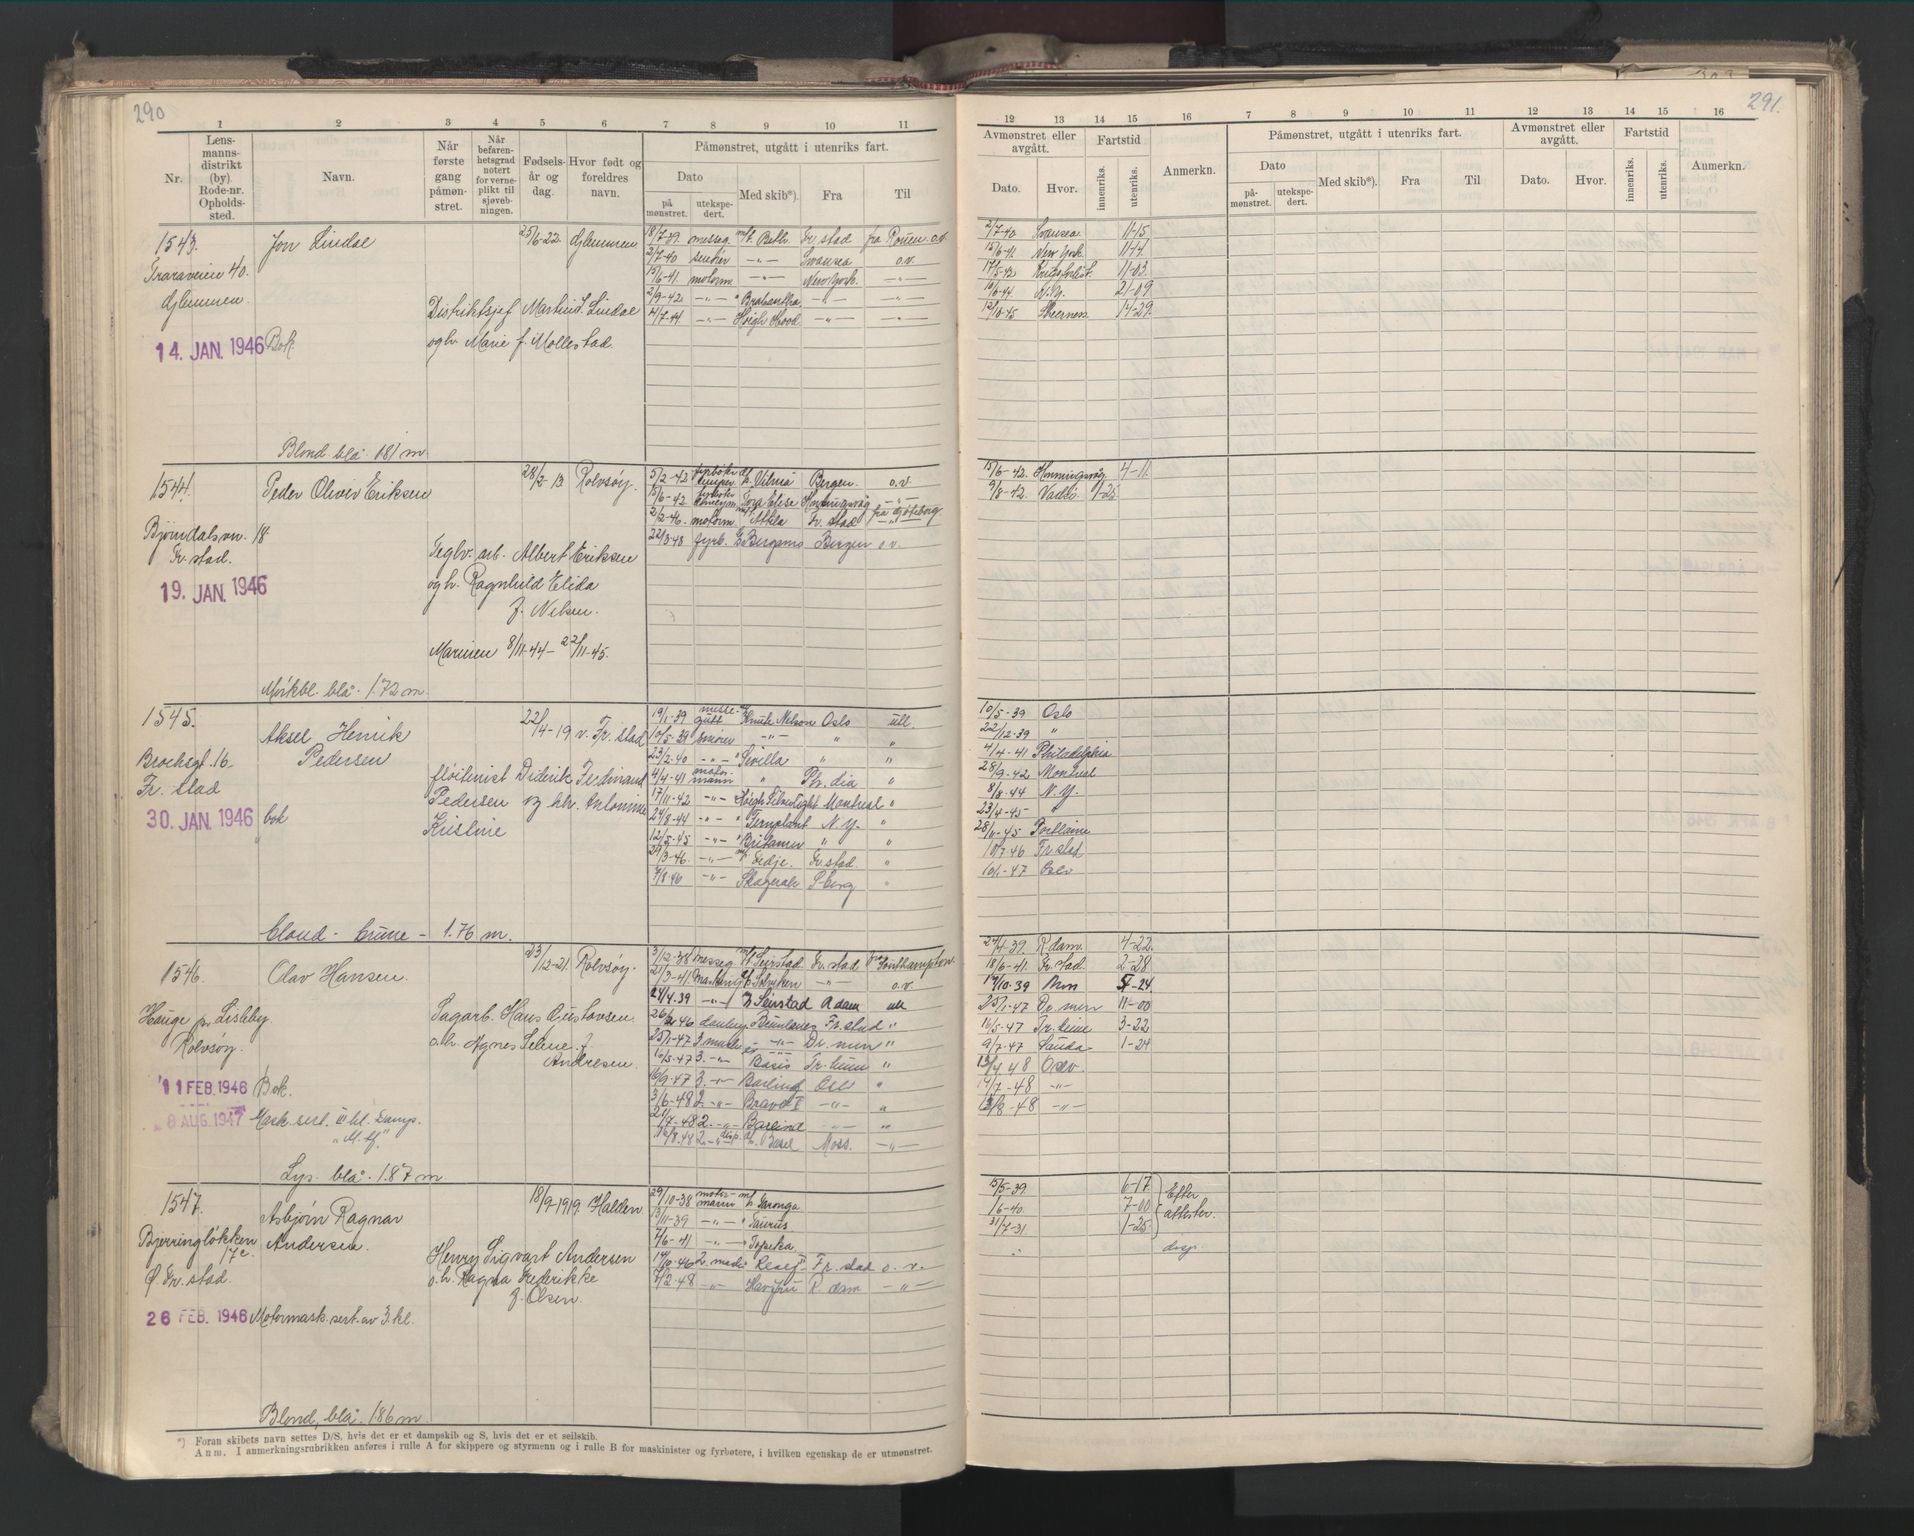 290
1 2 3 4 5 6 7 8 9 10 11
Nr.
Lens-
manns-
distrikt
(by)
Rode-nr.
Opholds-
sted.
Navn.
Når
første
gang
påmøn-
stret.
Når
befaren-
hetsgrad
notert
for verne-
plikt til
sjøveb-
ningen.
Fødsels-
år og
dag.
Hvor født og
foreldres
navn.
Påmønstret, utgått i utenriks fart.
Dato
på
mønstret.
utekspe-
dert.
Med skib*).
Fra
Til
1543. Jon Lindoe 25/6-22. Glemmen
Traraveien 40.
Glemmen.
Distriktsjef Martin L. Lindoe
og h. Marie f. Mollestad.
14. JAN. 1946 Bok
Blond blå 181 m
18/7-39. messeg. m/t. Beth. Fr.stad fra Rouen o.v.
2/7-40 smører —„— Swansea o.v.
15/6-41. motorm. —„— New York. —„—
2/9-42. —„— " Brabantha —„— —„—
4/7-44 —„— Høegh Hood. —„— —„—
1544. Peder Olivir Eriksen 28/2-13 Rolvsøy.
Bjørndalsvn. 18
Fr.stad.
Teglv. arb. Albert Eriksen
og h. Ragnhild Elida
f. Nilsen.
19. JAN. 1946
Marinen 8/11-44 - 22/11-45.
Mørkbl. blå. 1.72 m.
5/2-42 fyrbøter lemper Vilnia Bergen. o.v.
15/6-42 Tora Elise Honningsvåg —„—
2/2-46. motorm. Attila Fr.stad fra Göteborg
22/3-48 fyrb. Bergen o.v.
1545. Aksel Henrik 22/4-19 v. Fr.stad
Pedersen
Brochsgt. 16
Fr.stad
fløiterist Diderik Ferdinand
Pedersen og hh. Antonine
Kristine
30. JAN. 1946 bok
blond - brune - 1.76 m.
19/1-39 messe- gutt Knute Nelson Oslo utl.
10/5-39 smører —„— " "
23/2-40 —„— " Sevilla " "
4/4-41 motor- mann " Ph.dia "
17/11-42 —„— Høegh Silverlight Montreal "
24/8-44 —„— " Fernplant N.Y. "
12/5-45 —„— " Britamer " "
29/3-46. —„— Eidje. Fr.stad. "
7/8-46 —„— Skagerak S.borg "
1546. Olav Hansen. 23/12-21. Rolvsøy.
Hauge p. Lisleby.
Rolvsøy.
Sagarb. Hans Gustavsen.
o.h. Agnes Seline f.
Andresen.
11 FEB. 1946 Bok.
8 AUG. 1947 Mask. sert. III kl. Damp.
„M. M."
Lys. blå. 1.87 m
3/12-38 Messeg. Seirstad. Fr.stad fra Southampton
21/3-41. Maskinig. Solviken —„— o.v.
24/4.39 —„— Seirstad Adam utl
26/-46 Donkey Brunlanes Fr.stad "
25/1-47 3 mask —„— Dr.men "
16/5-47 3. —„— Basis Fr.heim "
16/9-47 3. —„— Barlind Oslo "
3/6-48 2. —„— Bravo I —„— "
21/7-48 2. —„— Barlind —„— "
16/8.48 2. —„— disp. Basel Moss. —„—
1547. Asbjørn Ragnar 18/9-1919. Halden
Andersen.
Bjerringløkken
17c
Ø. Fr.stad.
Henry Sigvart Andersen
o.h. Ragna Frederikke
f. Olsen.
26 FEB. 1946 Motormask. sert. av 3. kl.
Blond, blå. 186 m.
29/10-38 motor- mann Taronga.
13/11-39 —„— " Taurus
7/6-41 —„— " Topeka.
14/10-46 2. mask Fr.stad o.v.
7/2-48 —„— R.dam —„—
*) Foran skibets navn settes D/S, hvis det er et dampskib og S, hvis det er et seilskib.
Anm. I anmerkningsrubrikken anføres i rulle A for skippere og styrmenn og i rulle B for maskinister og fyrbøtere, i hvilken egenskap de er utmønstret.
291.
12 13 14 15 16 7 8 9 10 11 12 13 14 15 16
Avmønstret eller
avgått.
Dato.
Hvor.
Fartstid
innenriks.
utenriks.
Anmerkn.
Påmønstret, utgått i utenriks fart.
Dato
på-
mønstret.
utekspe-
dert.
Med skib*).
Fra
Til
Avmønstret eller
avgått.
Dato.
Hvor.
Fartstid
innenriks.
utenriks.
Anmerkn.
2/7-40 Swansea 11-15
15/6-41. New York. 11-
17/5-42 11-03.
10/6-44. N.Y. 21-09.
12/10-45 14-29.
15/6-42. Honningsvåg 4-11.
9/8-42. Vadsø. 1-25
10/5-39 Oslo
22/12-39 "
4/4-41 Philadelphia
28/9-42 Montreal
8/8-44 N.Y.
23/4-45 "
28/11-45
10/7-46 Fr.stad
10/1-47 Oslo
24/4-39. R.dam. 4-22.
18/6-41. Fr.stad. 2-28
17/10.39 -24.
25/1-47 Dr.men 11-00
16/5-47 Tr.heim 3-22
9/7-47 Sauda 1-24
13/4-48 Oslo
14/7-48 —„—
13/8-48 —„—
15/5-39. 6-17 Efter
1/6-40. 7-00 attester.
31/7-31 1-25.
disp.